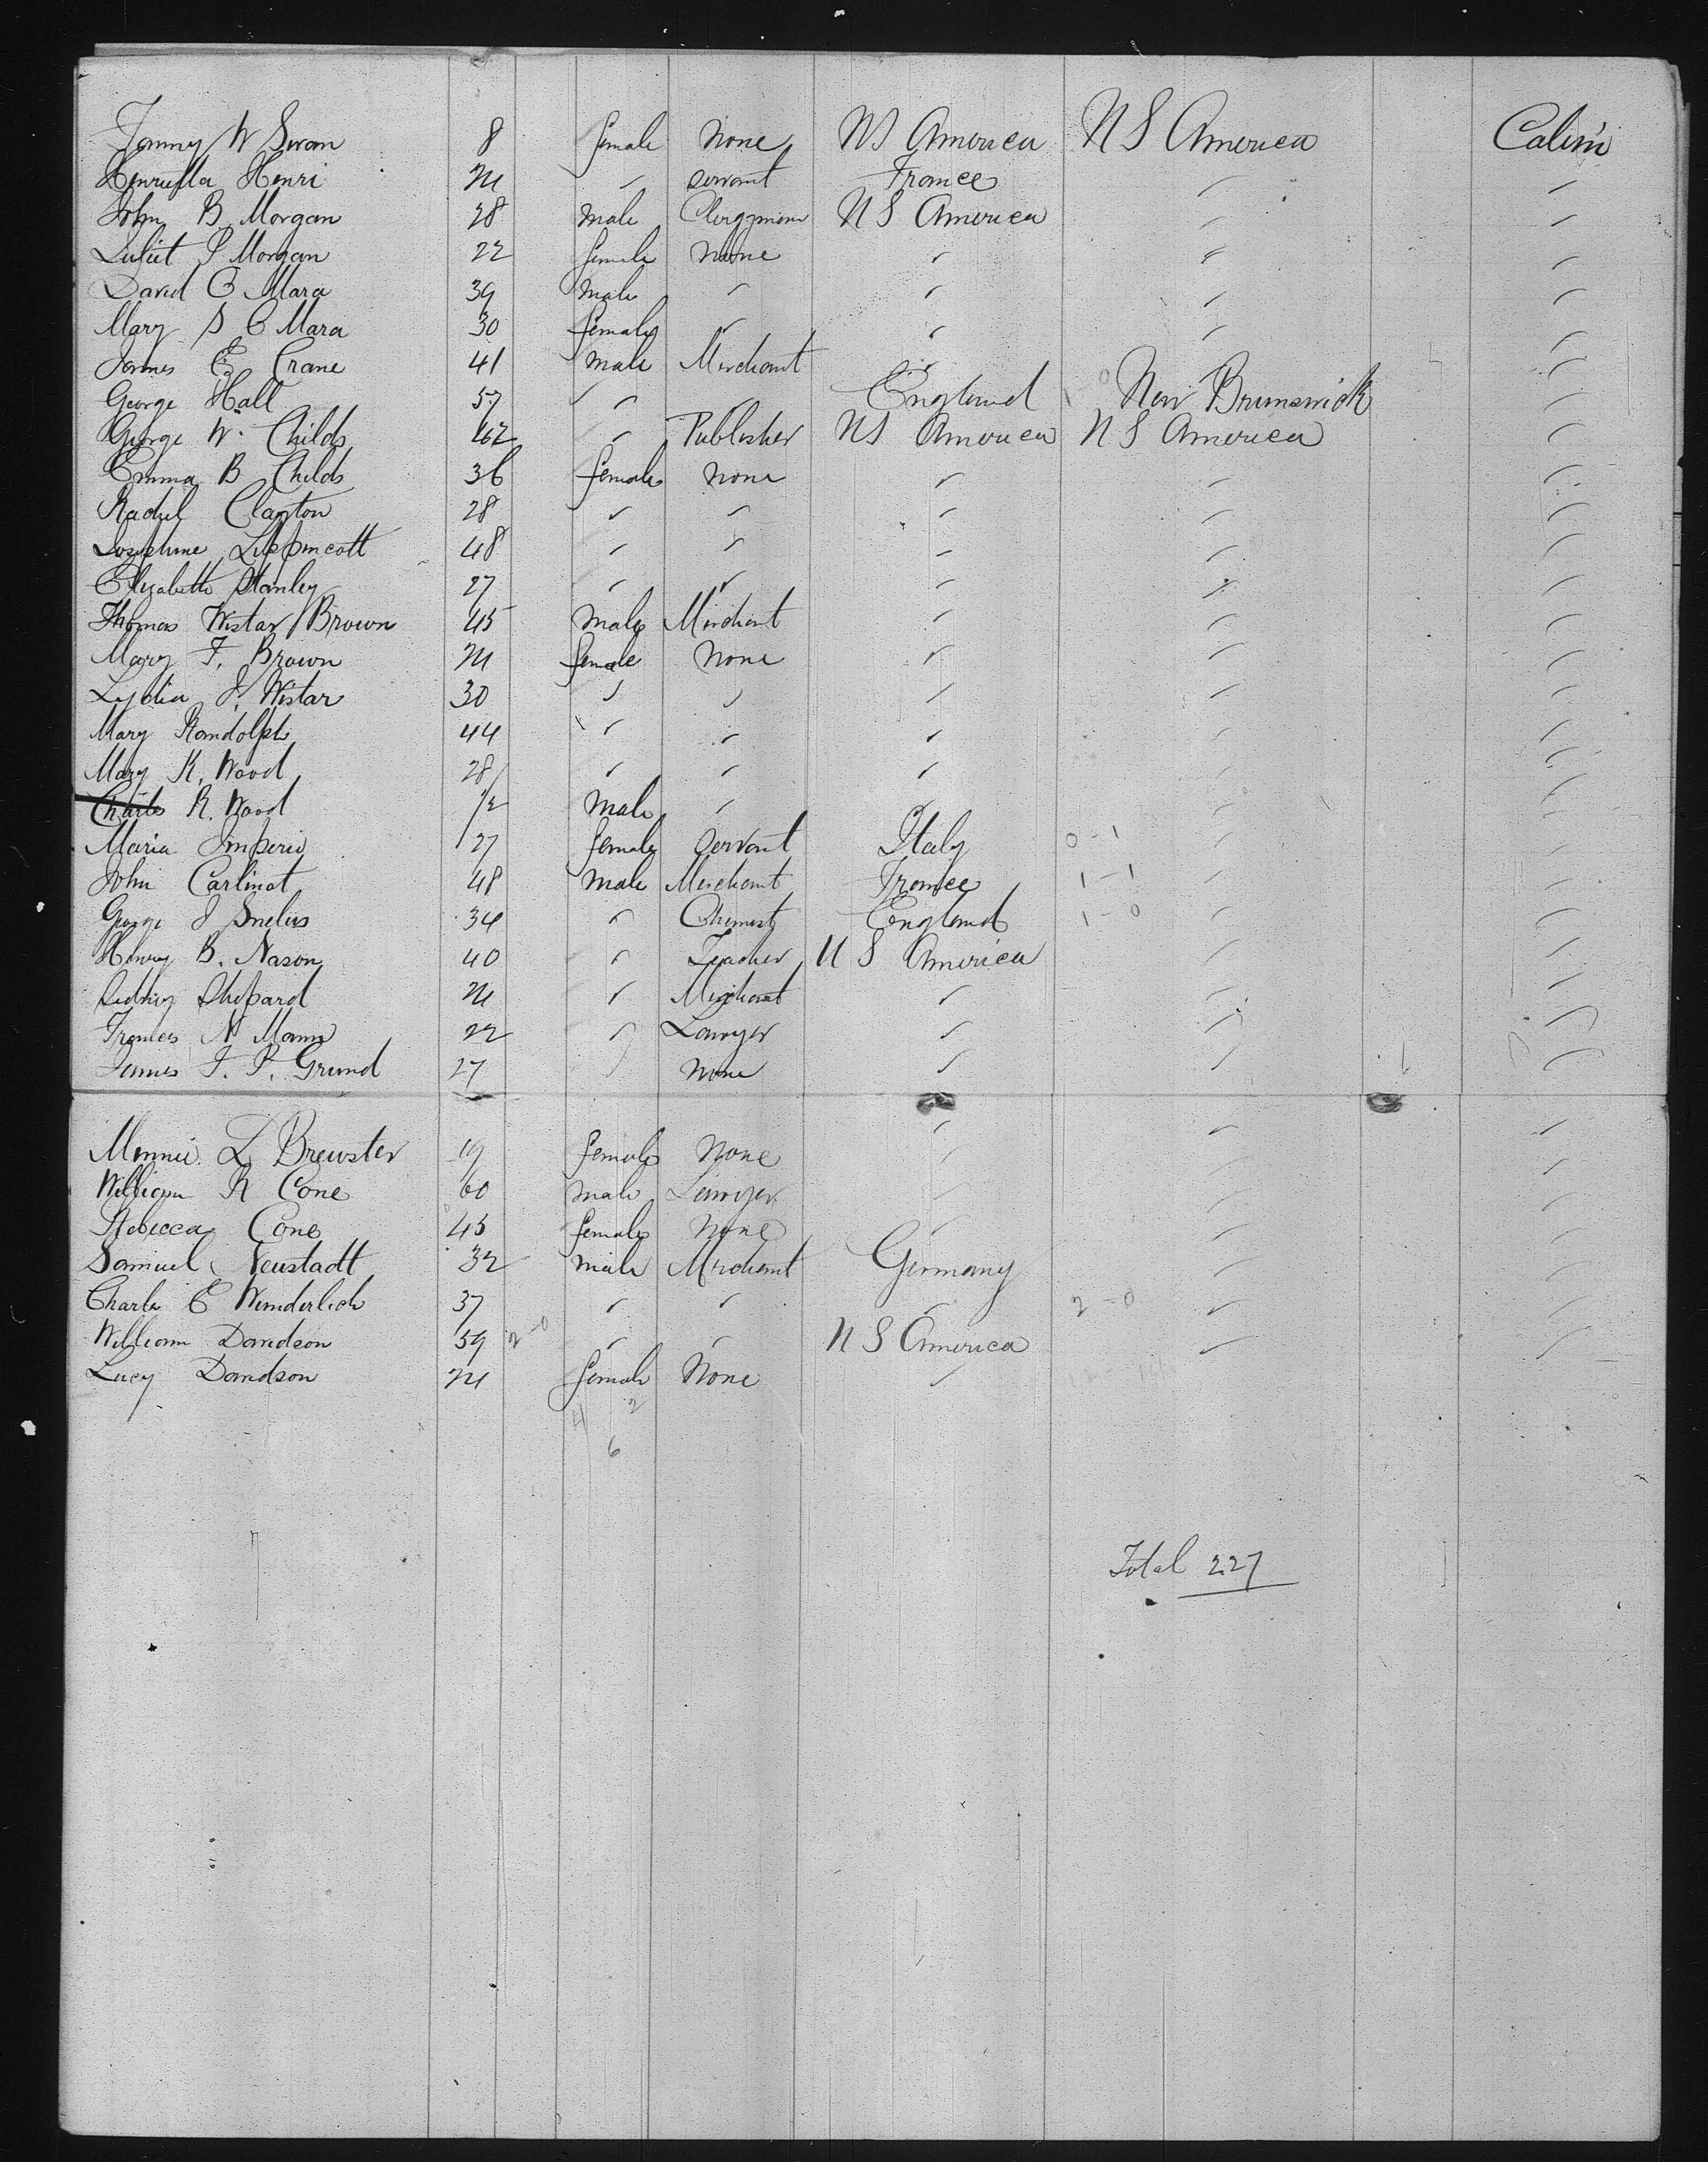 Fanny W Swan 8 female None US America US America Cabin
Henrietta Henri 24 " servant France " "
John B. Morgan 28 male Clergyman US America " "
Juliet P Morgan 22 female None " " "
David O Mara 39 male " " " "
Mary S O Mara 30 female " " " "
James E. Crane 41 male Merchant " " "
George Hall 57 " " England New Brunswick "
George W. Childs 42 " Publisher US America US America "
Emma B Childs 36 female None " " "
Rachel Clayton 28 " " " " "
Josephine Lippincott 48 " " " " "
Elizabeth Stanley 27 " " " " "
Thomas Wistar Brown 45 male Merchant " " "
Mary F. Brown 24 female None " " "
Lydia J. Wistar 30 " " " " "
Mary Randolph 44 " " " " "
Mary R. Wood 28 " " " " "
Charles R. Wood 1/2 male " " " "
Maria Imperio 27 female Servant Italy 0-1 " "
John Carlinot 48 male Merchant France 1-1 " "
George J Snelus 34 " Chemist England 1-0 " "
Henry B. Nason 40 " Teacher U S America " "
Sidney Shepard 24 " Merchant " " "
Frances N Mann 22 " Lawyer " " "
James F. P. Grund 27 " None " " "
Minnie L Brewster 19 female None " " "
William R Cone 60 male Lawyer " " "
Rebecca Cone 45 female None " " "
Samuel Neustadt 32 male Merchant Germany " "
Charle E Wunderlich 37 " " " 2-0 " "
William Davidson 59 2-0 " " U S America " "
Lucy Davidson 24 female None "
4 2
6
Total 227